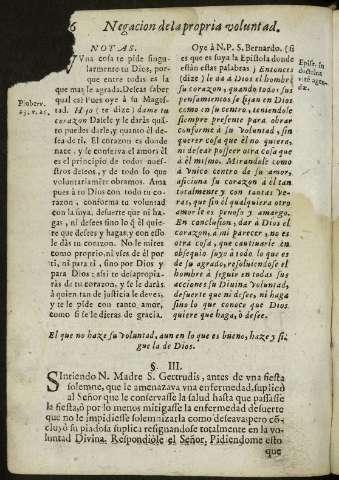 6 Negacion de la propria voluntad.
NOTAS.
Vna cosa te pide singu-
larmente tu Dios, por-
que entre todas es la
que mas le agrada. Deseas saber
qual es? Pues oye à su Mages-
tad. Hijo (te dize) dame tu
corazon. Dasele y le daràs quã-
to puedes darle, y quanto èl de-
sea de ti. El corazon es donde
nace, y se conserva el amor; èl
es el principio de todos nues-
tros deseos, y de todo lo que
voluntariamẽte obramos. Ama
pues à tu Dios con todo tu co-
razon, conforma tu voluntad
con la suya, desuerte que ni ha-
gas, ni desees sino lo q̃ èl quie-
re que desees y hagas, y con esso
le dàs tu corazon. No le mires
como proprio, ni vses de èl por
ti, ni para ti, sino por Dios y
para Dios; assi te desapropia-
ràs de tu corazon, y se le daràs
à quien tan de justicia le deves,
y te le pide con tanto amor,
como si se le dieras de gracia.
Proberv.
23. v. 26.
Oye à N. P. S. Bernardo. (si
es que es suya la Epistola donde
están estas palabras) Entonces
(dize) le dà à Dios el hombre
su corazon, quando todos sus
pensamientos se fijan en Dios
como en su centro, teniendole
siempre presente para obrar
conforme à su Voluntad, sin
querer cosa que èl no quiera,
ni desear posseer otra cosa que
à èl mismo. Mirandole como
à vnico centro de su amor,
aficiona su corazon à èl tan
totalmente y con tantas ve-
ras, que sin èl qualquiera otro
amor le es penoso y amargo.
En conclusion, dar à Dios el
corazon, à mi parecer, no es
otra cosa, que cautivarle en
obsequio suyo à todo lo que es
de su agrado, resolviendose el
hombre à seguir en todas sus
acciones su Divina Voluntad,
desuerte que ni desee, ni haga
sino lo que conoce que Dios
quiere que haga, ò desee.
Epist. su
doctrina
El que no haze su voluntad, aun en lo que es bueno, haze y si-
gue la de Dios.
§. III.
SIntiendo N. Madre S. Gertrudis, antes de vna fiesta
solemne, que le amenazava vna enfermedad, suplicò
al Señor que le conservasse la salud hasta que passasse
la fiesta, ò por lo menos mitigasse la enfermedad desuerte
que no le impidiesse solemnizarla como deseava; pero cõ-
cluyò su piadosa suplica resignandose totalmente en la vo-
luntad Divina. Respondiòle el Señor, Pidiendome esto
que